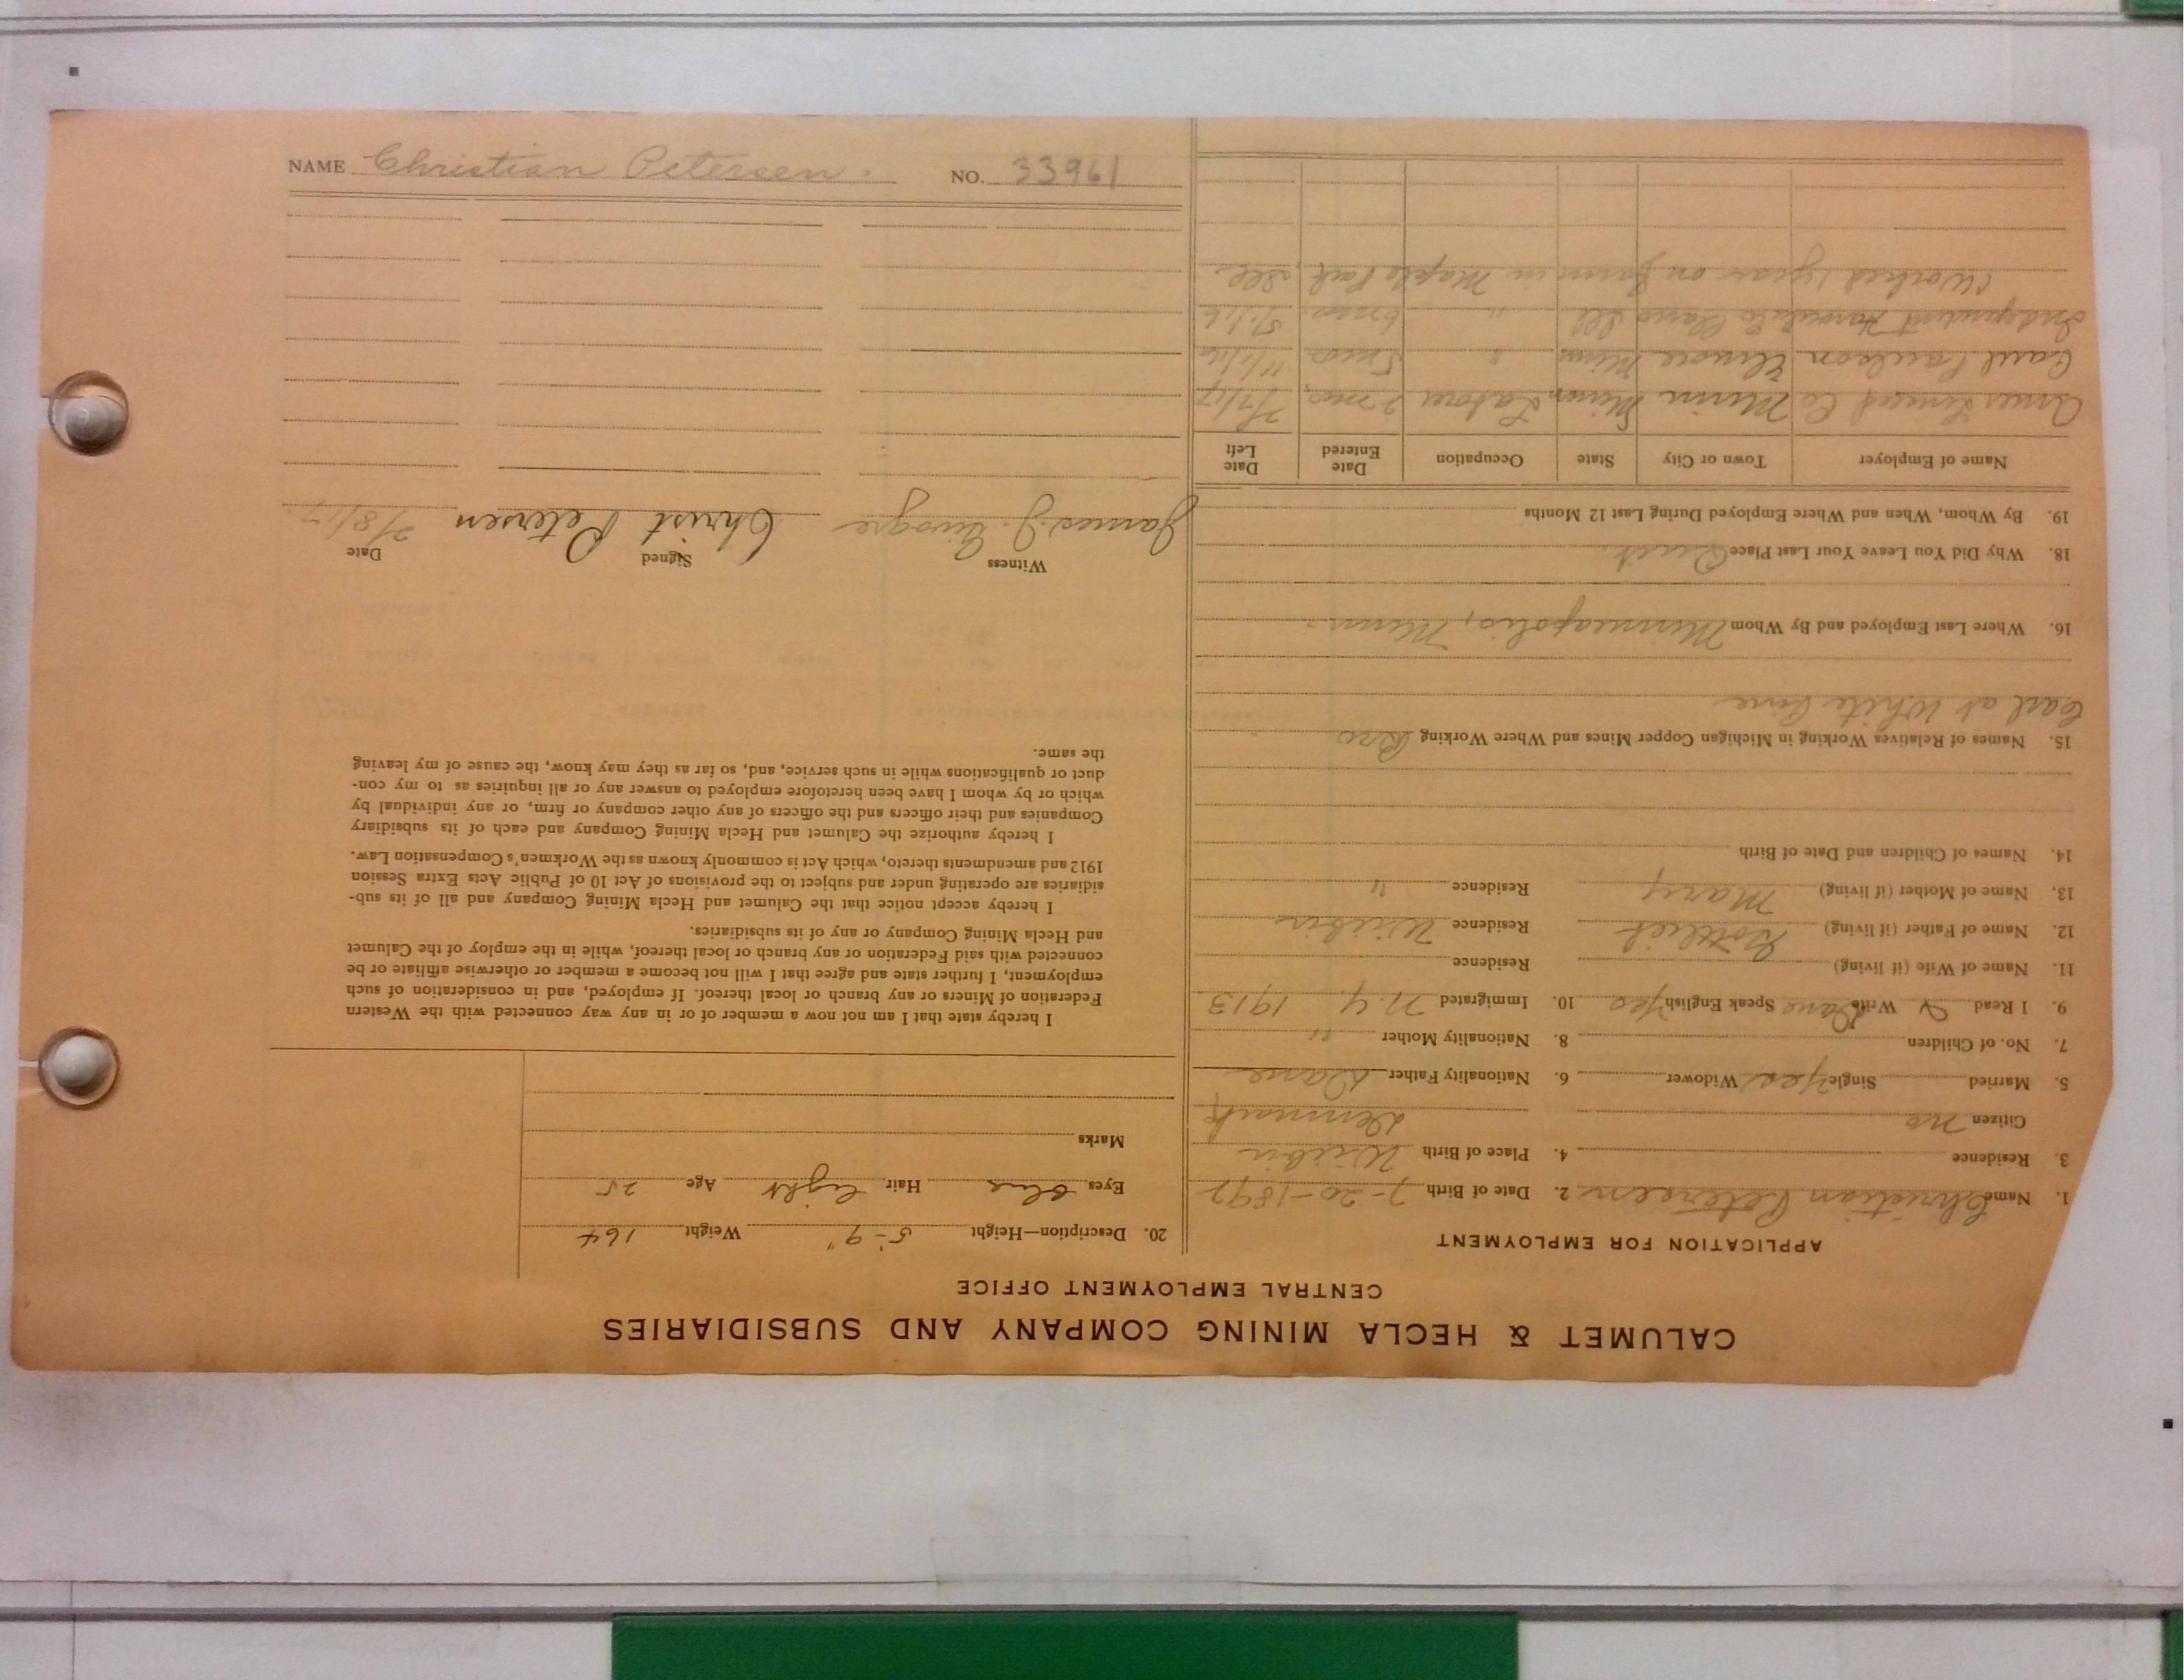 NAME Christian Petersen. NO. 33961
CALUMET & HECLA MINING COMPANY AND SUBSIDIARIES
CENTRAL EMPLOYMENT OFFICE
APPLICATION FOR EMPLOYMENT
1. Name Christian Petersen 2. Date of Birth 7-20-1892
3. Residence 4. Place of Birth
Citizen no Denmark
5. Married Single Yes Widower 6. Nationality Father Dane
7. No. of Children 8. Nationality Mother "
9. I Read & Write Dane Speak English Yes 10. Immigrated N.Y. 1913
11. Name of Wife (if living) Residence
12. Name of Father (if living) Gottlieb Residence
13. Name of Mother (if living) Mary Residence "
14. Names of Children and Date of Birth
15. Names of Relatives Working in Michigan Copper Mines and Where Working Bro
Carl at White Pine
16. Where Last Employed and By Whom Minneapolis, Minn.
18. Why Did You Leave Your Last Place Quit
19. By Whom, When and Where Employed During Last 12 Months
Name of Employer Town or City State Occupation Date Entered Date Left
Amer Linseed Co Minn Minn Labor 2 mos. 2/7/17
Carl Paulson Elmore Minn " 5 mos
Independent Co Ill " 6 mos.
Worked 1 year on farm in Maple Park, Ill.
20. Description—Height 5'-9" Weight 164
Eyes blue Hair light Age 25
Marks
I hereby state that I am not now a member of or in any way connected with the Western
Federation of Miners or any branch or local thereof. If employed, and in consideration of such
employment, I further state and agree that I will not become a member or otherwise affiliate or be
connected with said Federation or any branch or local thereof, while in the employ of the Calumet
and Hecla Mining Company or any of its subsidiaries.
I hereby accept notice that the Calumet and Hecla Mining Company and all of its sub-
sidiaries are operating under and subject to the provisions of Act 10 of Public Acts Extra Session
1912 and amendments thereto, which Act is commonly known as the Workmen's Compensation Law.
I hereby authorize the Calumet and Hecla Mining Company and each of its subsidiary
Companies and their officers and the officers of any other company or firm, or any individual by
which or by whom I have been heretofore employed to answer any or all inquiries as to my con-
duct or qualifications while in such service, and, so far as they may know, the cause of my leaving
the same.
Witness Signed Date
James J. Christ Petersen 2/8/17.